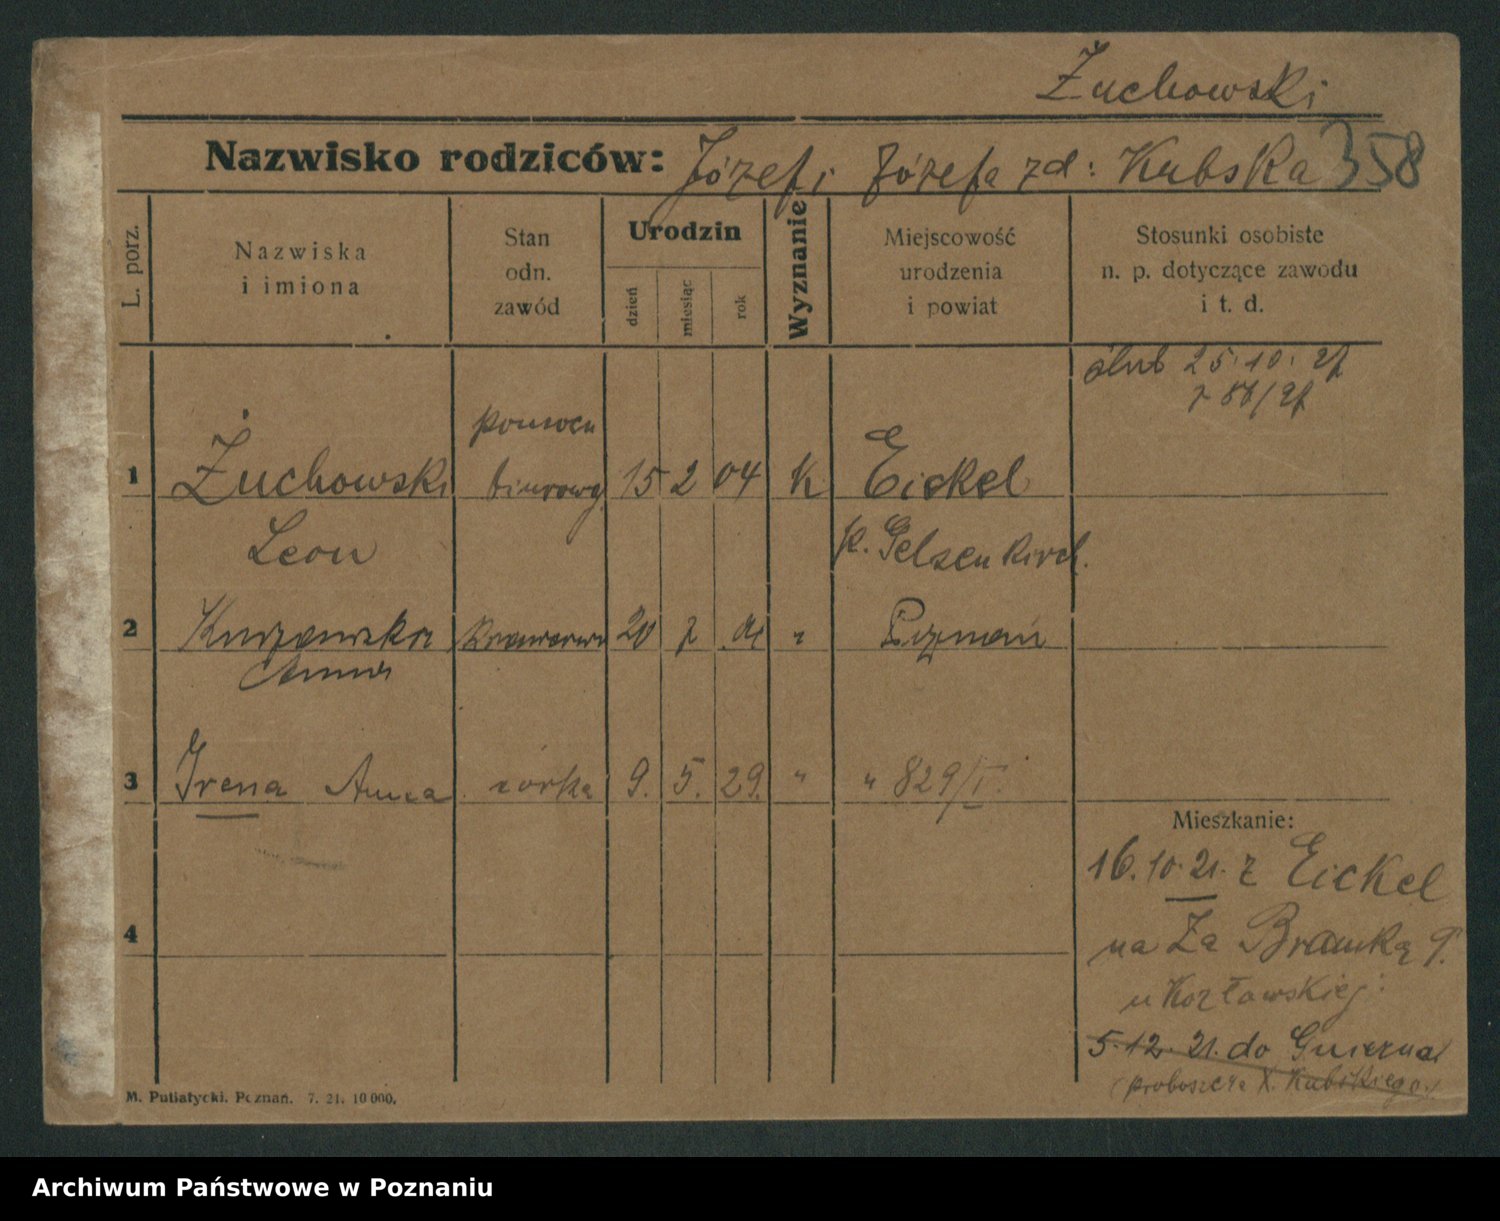 Żuchowski
Nazwisko rodziców: Józef i Józefa zd: Kubska 358
L. porz.
Nazwiska
i imiona
Stan
odn.
zawód
Urodzin
dzień
miesiąc
rok
Wyznanie
Miejscowość
urodzenia
i powiat
Stosunki osobiste
n. p. dotyczące zawodu
i t. d.
ślub 25.10.
1 Żuchowski biurowy 15 2 04 K Eickel
Leon p. Gelsenkirch.
2 20 Poznań
Anna
3 Irena Anna córka 9. 5. 29. " " 829/I.
Mieszkanie:
16.10.21. z Eickel
na Za Bramką 9.
u Kozłowskiej
4
5.12.21. do Gniezna
(proboszcza X. Kubskiego.)
M. Putiatycki. Poznań. 7. 21. 10 000.
Archiwum Państwowe w Poznaniu